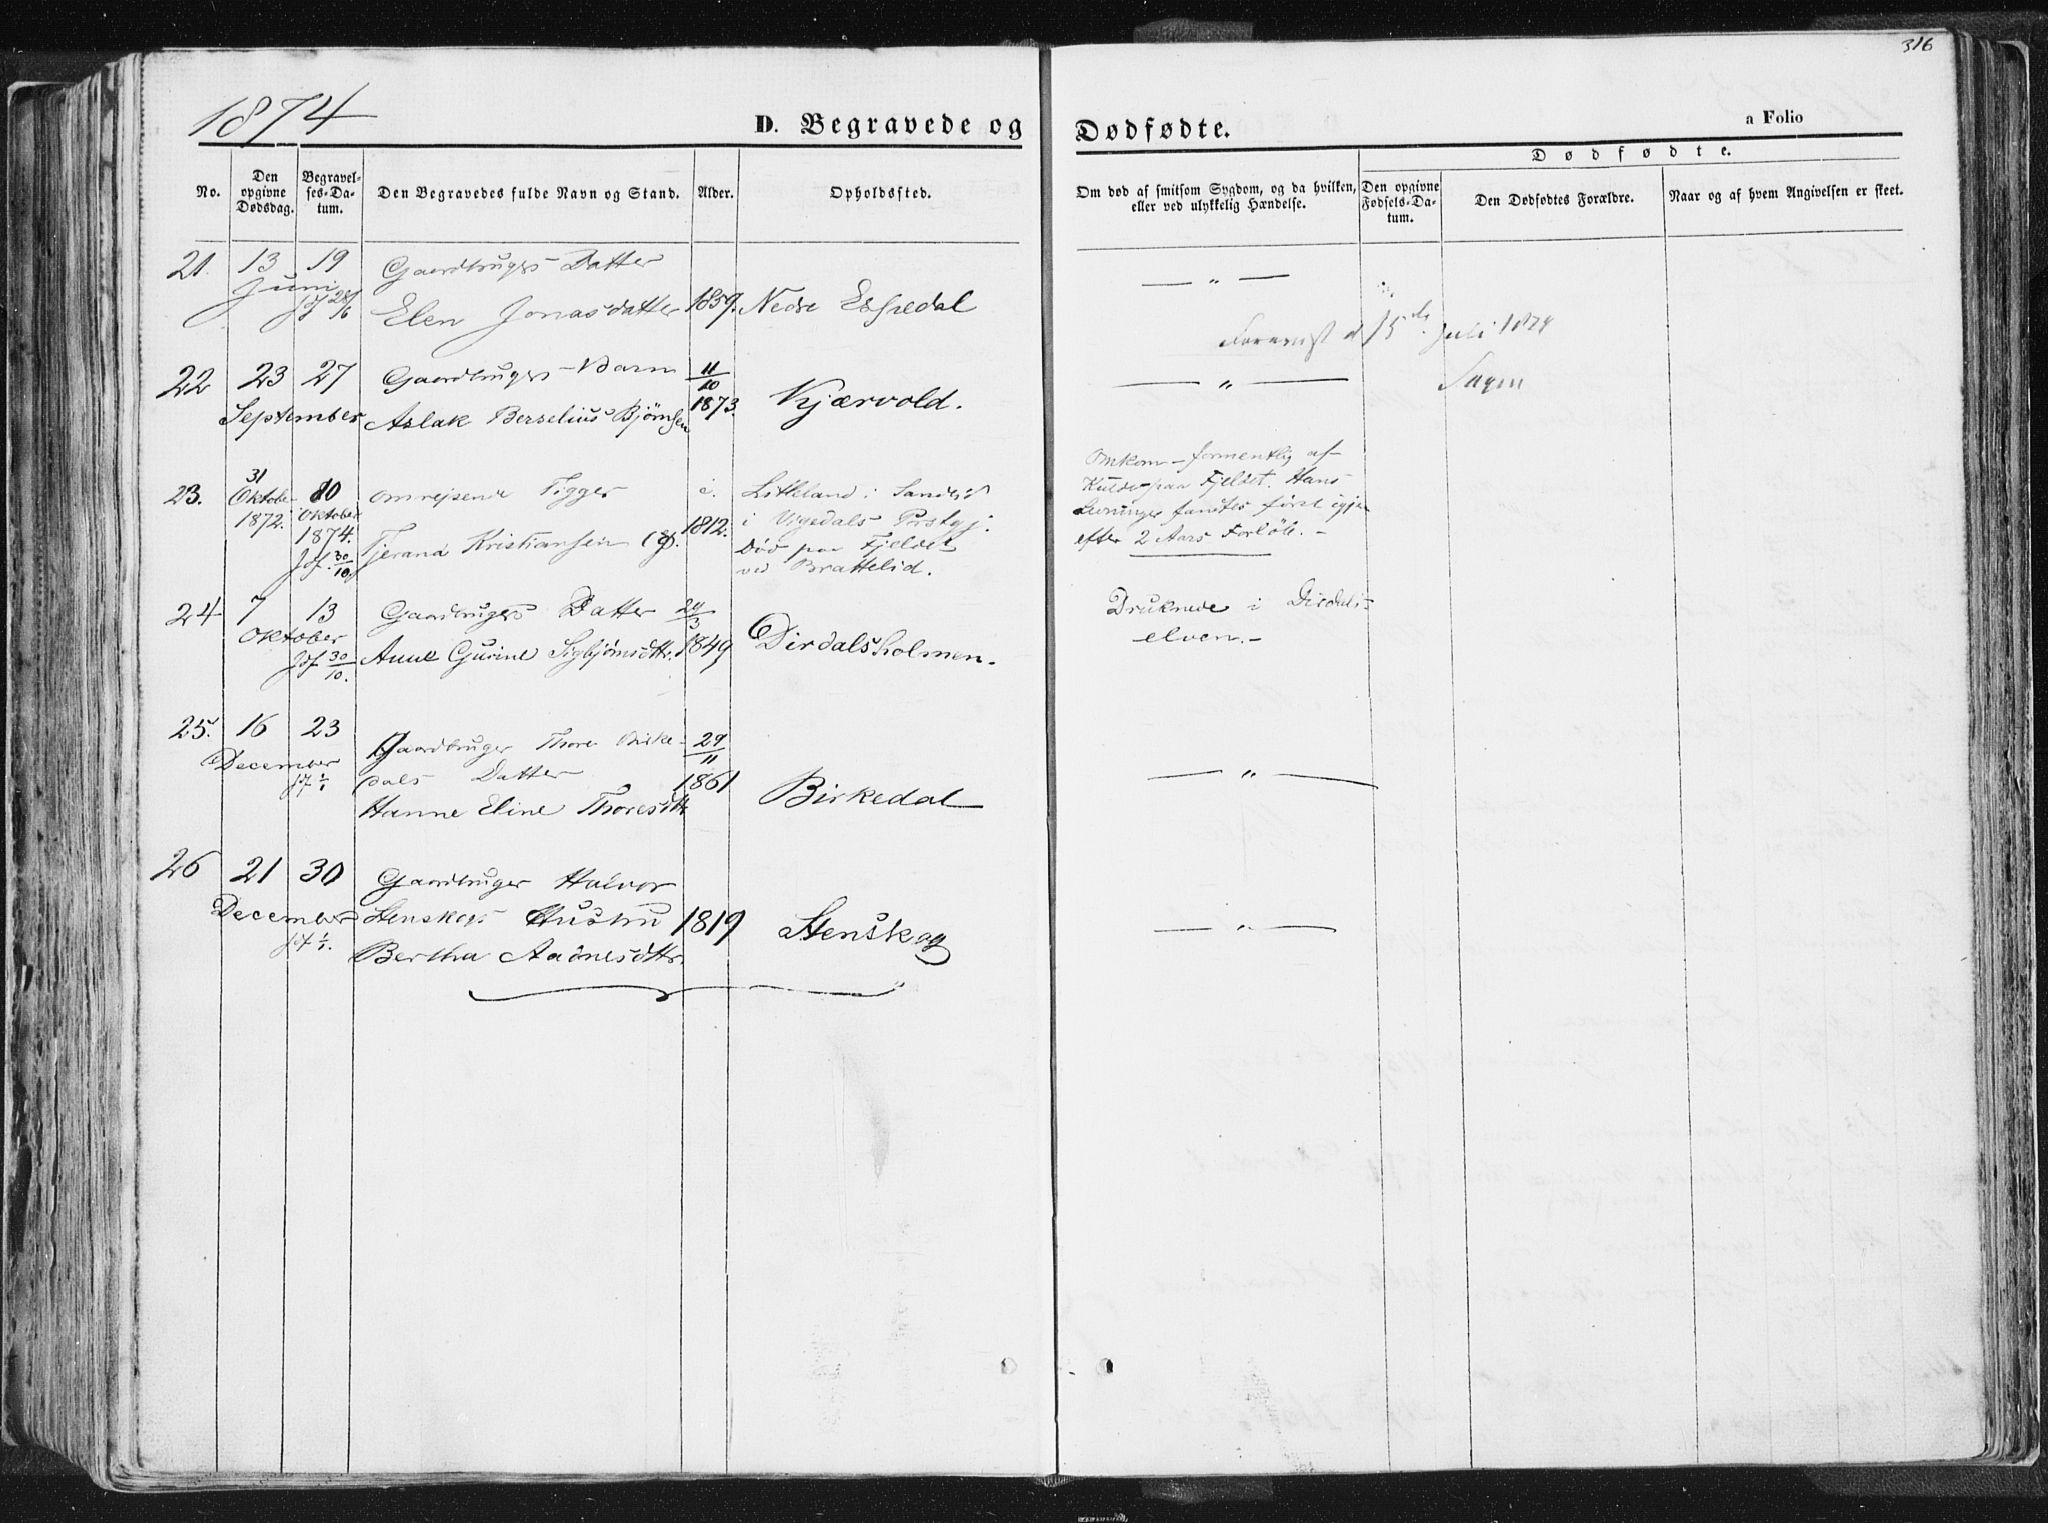 316
1874
D. Begravede og Dødfødte.
a Folio
No.
Den opgivne Dødsdag.
Begravelses-Datum.
Den Begravedes fulde Navn og Stand.
Alder.
Opholdssted.
Om død af smitsom Sygdom, og da hvilken, eller ved ulykkelig Hændelse.
Dødfødte.
Den opgivne Fødsels-Datum.
Den Dødfødtes Forældre.
Naar og af hvem Angivelsen er skeet.
21. 13 19 Gaardbrugers Datter
Juni
Jdf 28/6 Elen Jonasdatter 1859. Nedre Espedal
— " —
d 15de Juli 1874
22 23 27 Gaardbrugers-Barn 11/10
September Aslak Berselius Bjørnsen 1873. Kjærvold.
— " —
23. 31 Oktober 1872. 10 Oktober 1874. Jdf. 30/10
omreisende Tigger
Tjerand Kristiansen
c. 1812.
Litleland i
i Vigedals Prstgj.
Død paa Fjeldet
ved Brattelid.
Omkom - formentlig af
Kulde paa Fjeldet. Hans
Levninger fandtes først igjen
efter 2 Aars Forløb. -
24 7 13 Gaardbrugers Datter 24/3
Oktober
Jdf 30/10. Anne Gurine Sigbjørnsdtr. 1849 Dirdalsholmen.
Druknede i Dirdals-
elven. -
25. 16 23 Gaardbruger Thore Birke-
December
Jdf 1/1 dals Datter
Hanne Eline Thoresdtr
29/11 1861 Birkedal
— " —
26 21 30 Gaardbruger Halvor
December Stenskogs Hustru 1819 Stenskog
Jdf 1/1. Bertha Aadnesdttr.
— " —